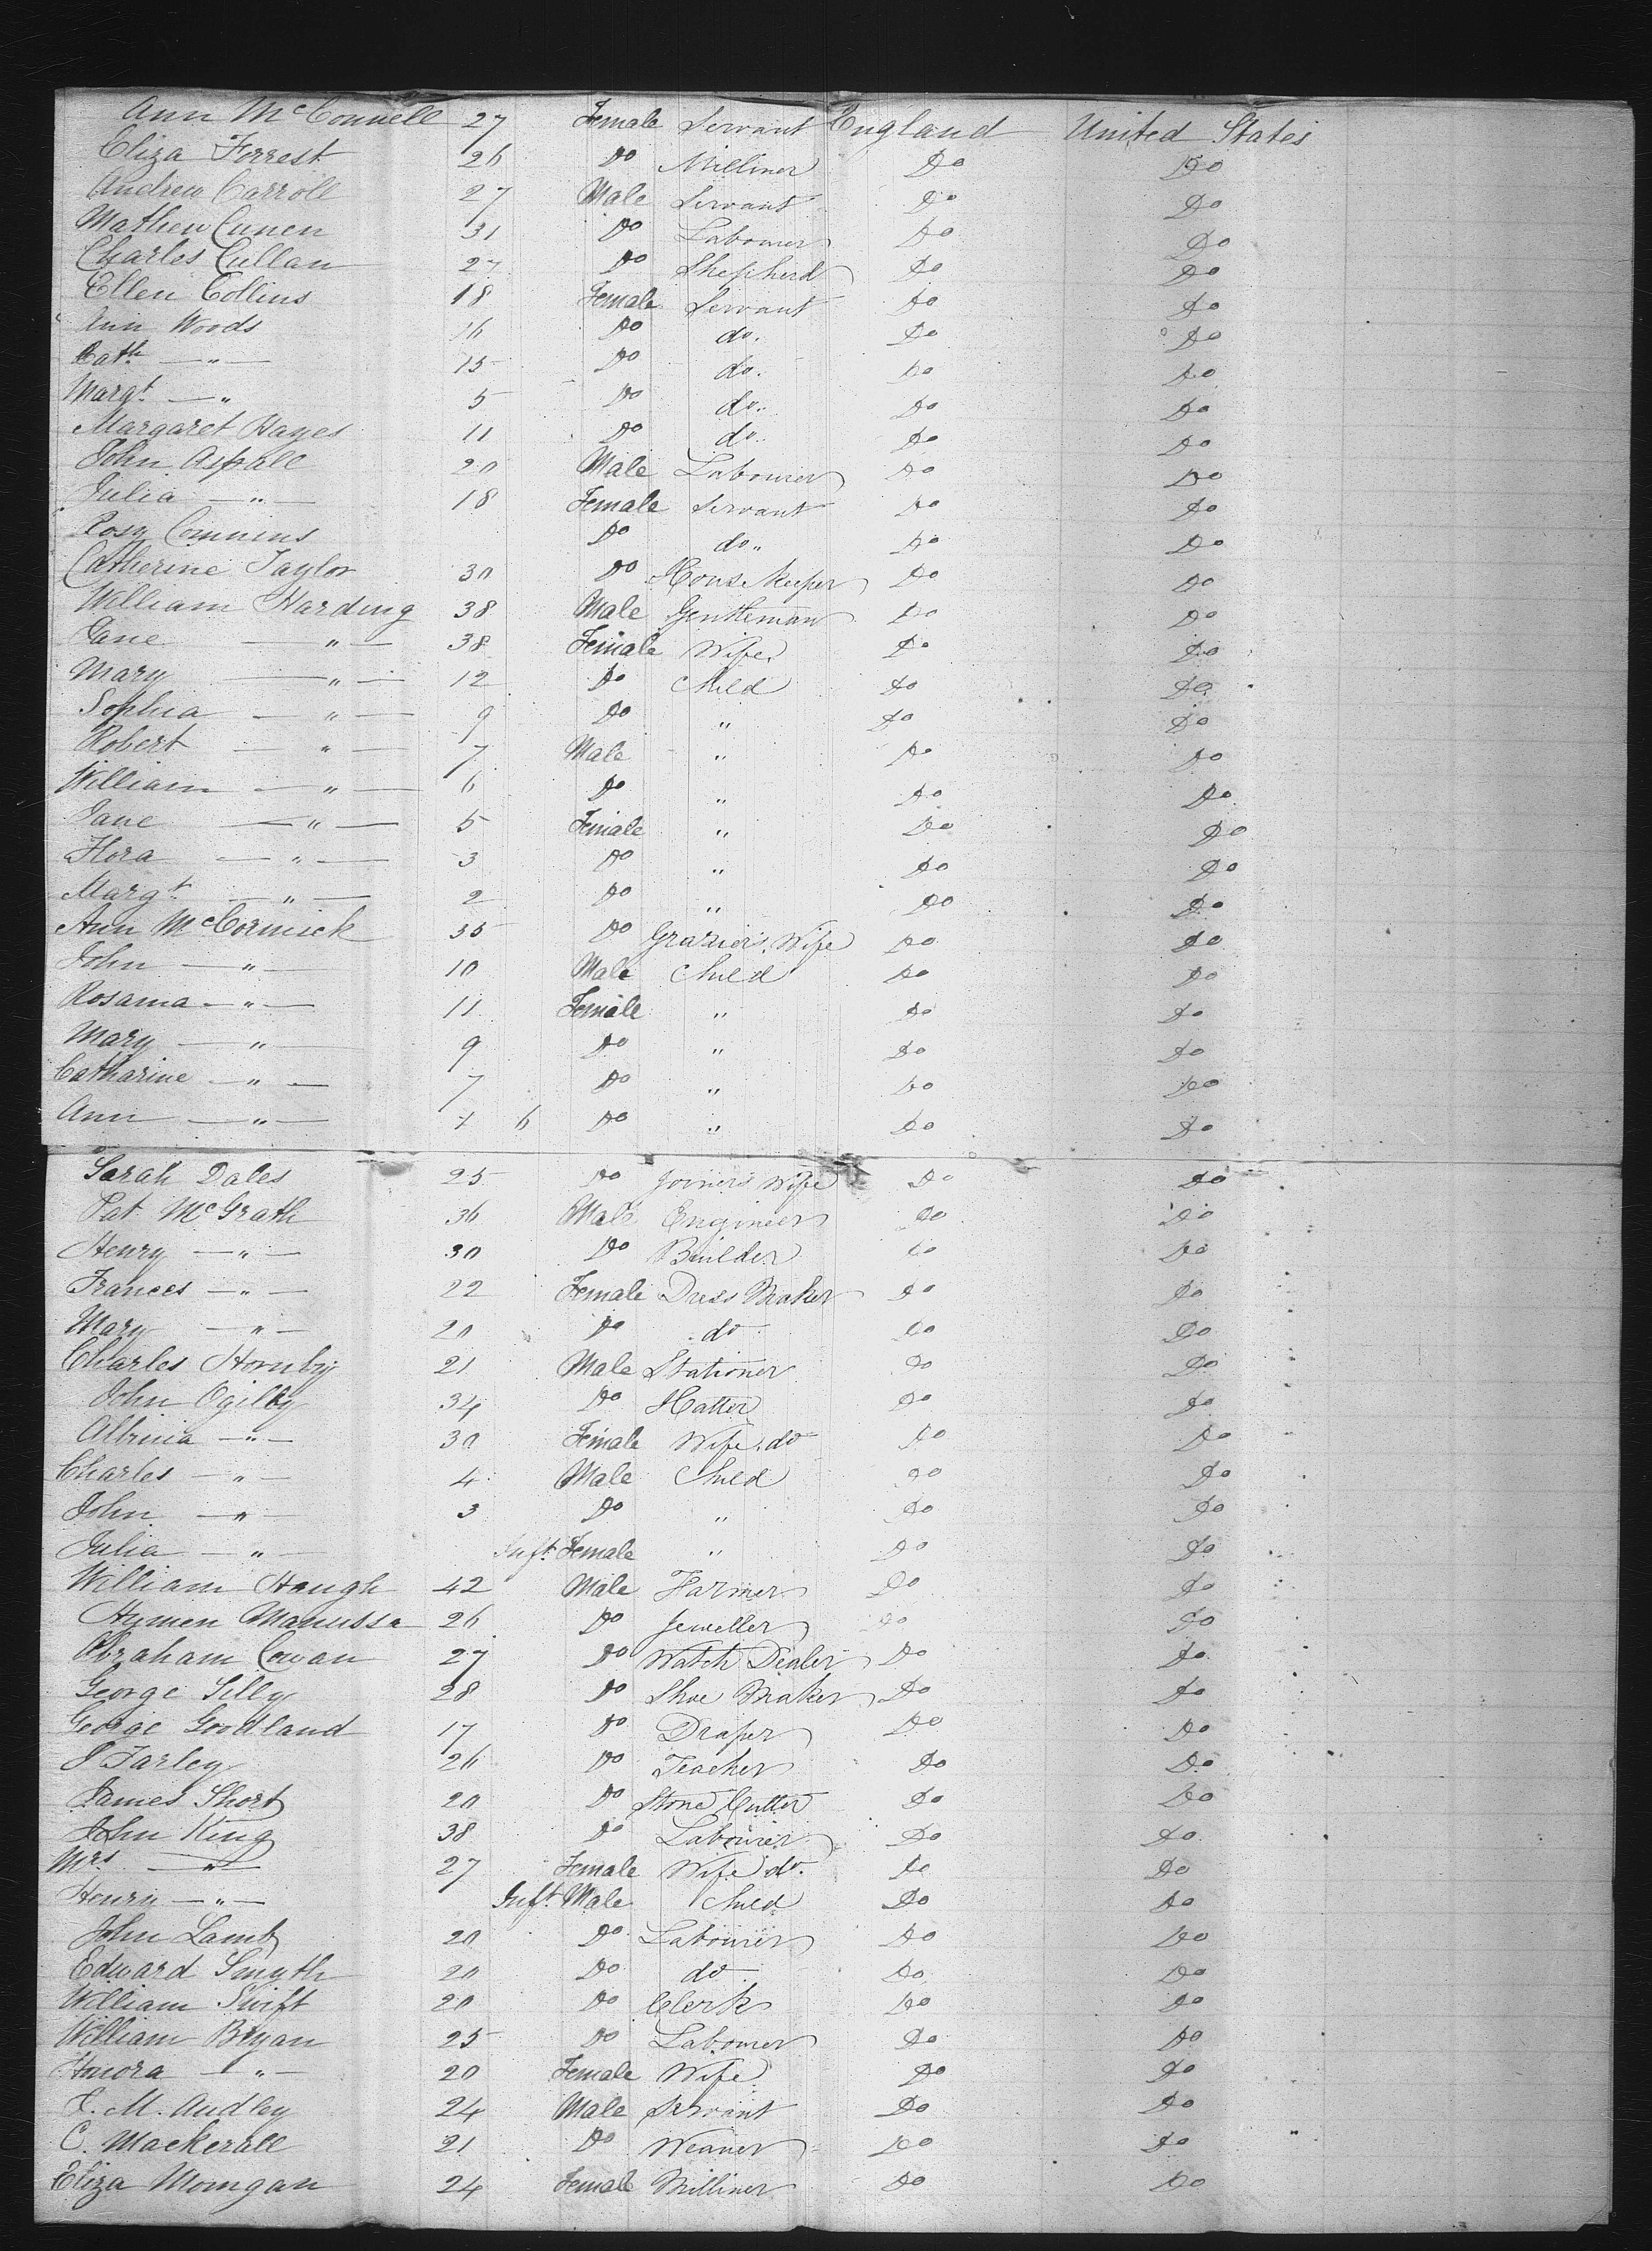 Ann McConnell 27 Female Servant England United States
Eliza Forrest 26 Do Milliner Do Do
Andrew Carroll 27 Male Servant Do Do
Mathew Cunen 31 Do Labourer Do Do
Charles Cullan 27 Do Shepherd Do Do
Ellen Collins 18 Female Servant Do Do
Ann Woods 16 Do do. Do Do
Cath — " — 15 Do do. Do Do
Margt — " 5 Do do.. Do Do
Margaret Hayes 11 Do do.. Do Do
John Aspall 20 Male Labourer Do Do
Julia — " — 18 Female Servant Do Do
Rosy Commins Do do.. Do Do
Catherine Taylor 30 Do House Keeper Do Do
William Harding 38 Male Gentleman Do Do
Jane — " — 38 Female Wife Do Do
Mary — " — 12 Do Child Do Do
Sophia — " — 9 Do " Do Do
Robert — " — 7 Male " Do Do
William — " — 6 Do " Do Do
Jane — " — 5 Female " Do Do
Flora — " — 3 Do " Do Do
Margt — " — 2 Do " Do Do
Ann McCormick 35 Do Graziers Wife Do Do
John — " — 10 Male Child Do Do
Rosanna — " — 11 Female " Do Do
Mary — " — 9 Do " Do Do
Catharine — " — 7 Do " Do Do
Ann — " — 6 Do " Do Do
Sarah Dales 25 Do Joiners Wife Do Do
Pat McGrath 36 Male Engineer Do Do
Henry — " — 30 Do Builder Do Do
Frances — " — 22 Female Dress Maker Do Do
Mary — " — 20 Do do Do Do
Charles Hornby 21 Male Stationer Do Do
John Ogilby 34 Do Hatter Do Do
Albinia — " — 30 Female Wife do Do Do
Charles — " — 4 Male Child Do Do
John — " — 3 Do " Do Do
Julia — " — Inft Female " Do Do
William Haugh 42 Male Farmer Do Do
Hymen Manussa 26 Do Jeweller Do Do
Abraham Cowan 27 Do Watch Dealer Do Do
George Silly 28 Do Shoe Maker Do Do
George Goodland 17 Do Draper Do Do
J Farley 26 Do Teacher Do Do
James Short 20 Do Stone Cutter Do Do
John King 38 Do Labourer Do Do
Mrs — " — 27 Female Wife do. Do Do
Henry — " — Inft Male Child Do Do
John Lamb 20 Do Labourer Do Do
Edward Smyth 20 Do do Do Do
William Swift 20 Do Clerk Do Do
William Bryan 25 Do Labourer Do Do
Honora — " — 20 Female Wife Do Do
E. M. Audley 24 Male Servant Do Do
C. Mackerall 21 Do Weaver Do Do
Eliza Morngan 24 Female Milliner Do Do